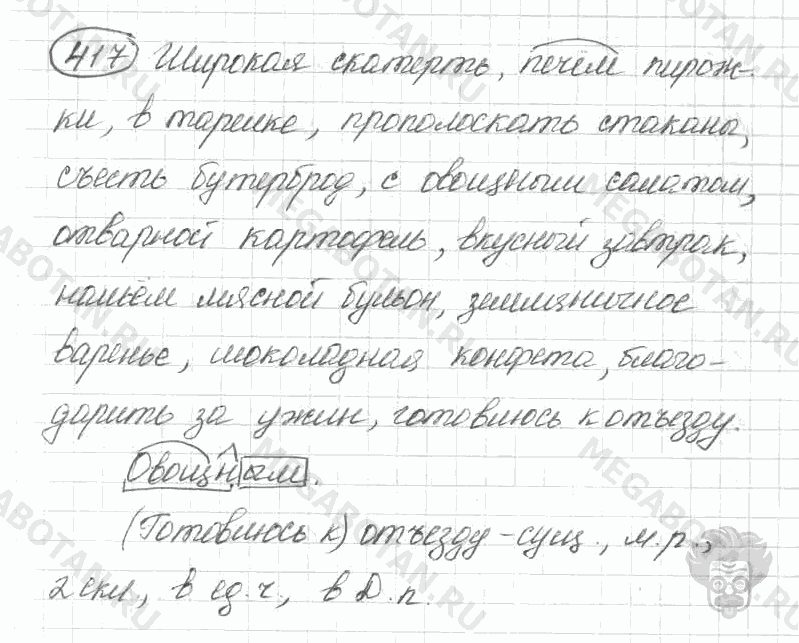 417 Широкая скатерть, печём пирож-
ки, в тарелке, прополоскать стаканы,
съесть бутерброд, с овощным салатом,
отварной картофель, вкусный завтрак,
нальём мясной бульон, земляничное
варенье, шоколадная конфета, благо-
дарить за ужин, готовлюсь к отъезду.
Овощным.
(Готовлюсь к) отъезду - сущ., м.р.,
2 скл., в ед.ч., в Д.п.